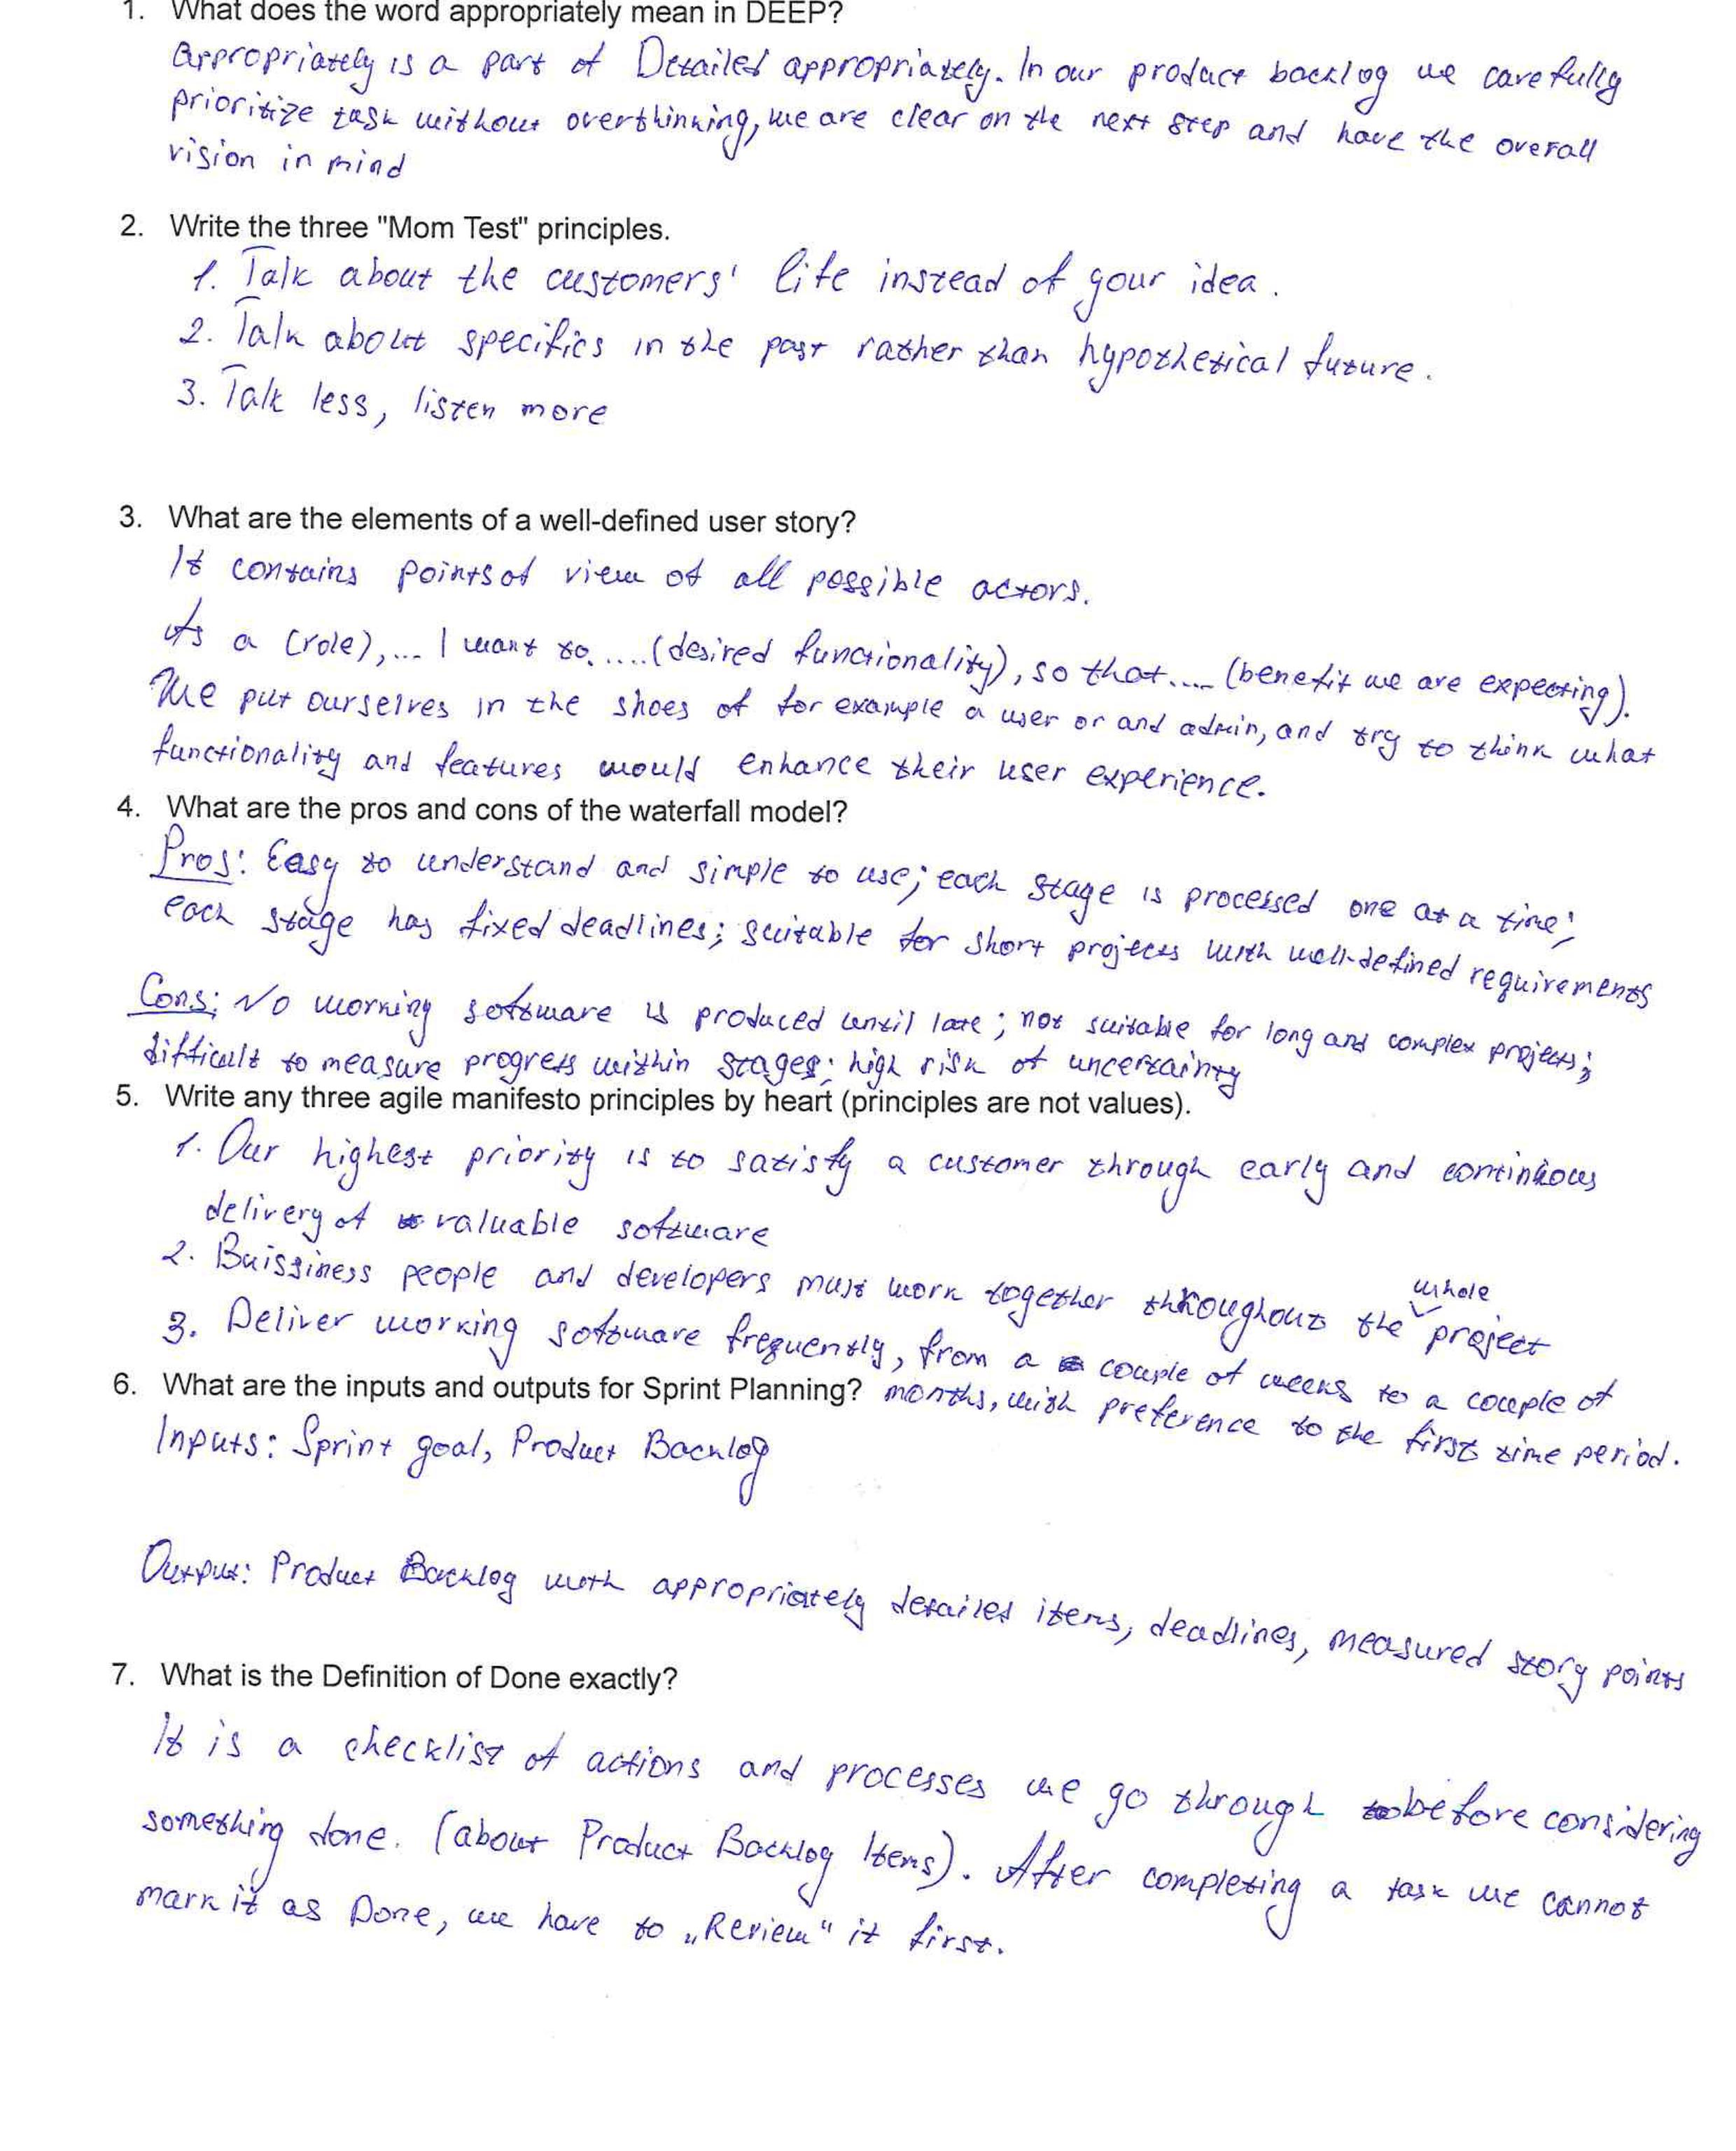 1. What does the word appropriately mean in DEEP?
Appropriately is a part of Detailed appropriately. In our product backlog we carefully
prioritize task without overthinking, we are clear on the next step and have the overall
vision in mind
2. Write the three "Mom Test" principles.
1. Talk about the customers' life instead of your idea.
2. Talk about specifics in the past rather than hypothetical future.
3. Talk less, listen more
3. What are the elements of a well-defined user story?
It contains points of view of all possible actors.
As a (role),... I want to.....(desired functionality), so that.... (benefit we are expecting).
We put ourselves in the shoes of for example a user or and admin, and try to think what
functionality and features would enhance their user experience.
4. What are the pros and cons of the waterfall model?
Pros: Easy to understand and simple to use; each stage is processed one at a time;
each stage has fixed deadlines; suitable for short projects with well-defined requirements
Cons: No working software is produced until late; not suitable for long and complex projects;
difficult to measure progress within stages; high risk of uncertainty
5. Write any three agile manifesto principles by heart (principles are not values).
1. Our highest priority is to satisfy a customer through early and continuous
delivery of valuable software
2. Buissiness people and developers must work together throughout the whole project
3. Deliver working software frequently, from a couple of weeks to a couple of
months, with preference to the first time period.
6. What are the inputs and outputs for Sprint Planning?
Inputs: Sprint goal, Product Backlog
Output: Product Backlog with appropriately detailed items, deadlines, measured story points
7. What is the Definition of Done exactly?
It is a checklist of actions and processes we go through before considering
something done. (about Product Backlog Items). After completing a task we cannot
mark it as Done, we have to „Review“ it first.